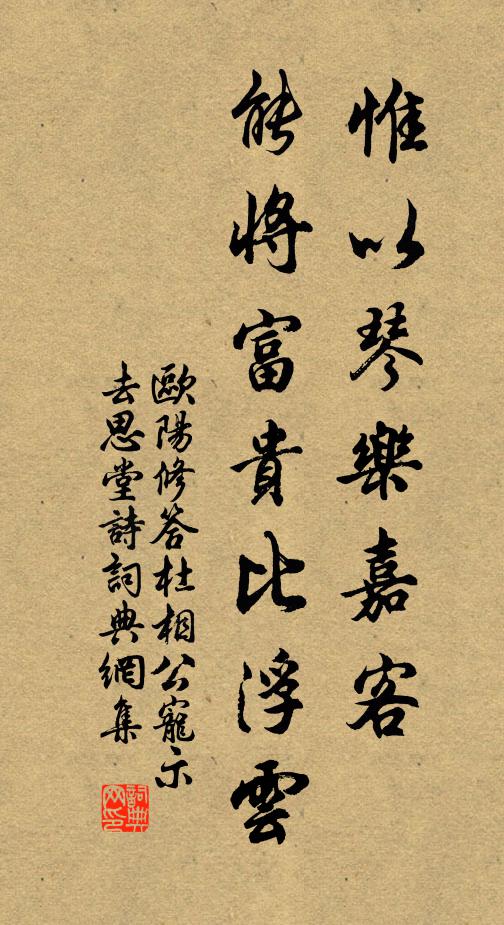 惟以琴樂嘉客
能將富貴比浮雲
歐陽修答杜相公寵示
去思堂詩詞典網集
詞典
网印